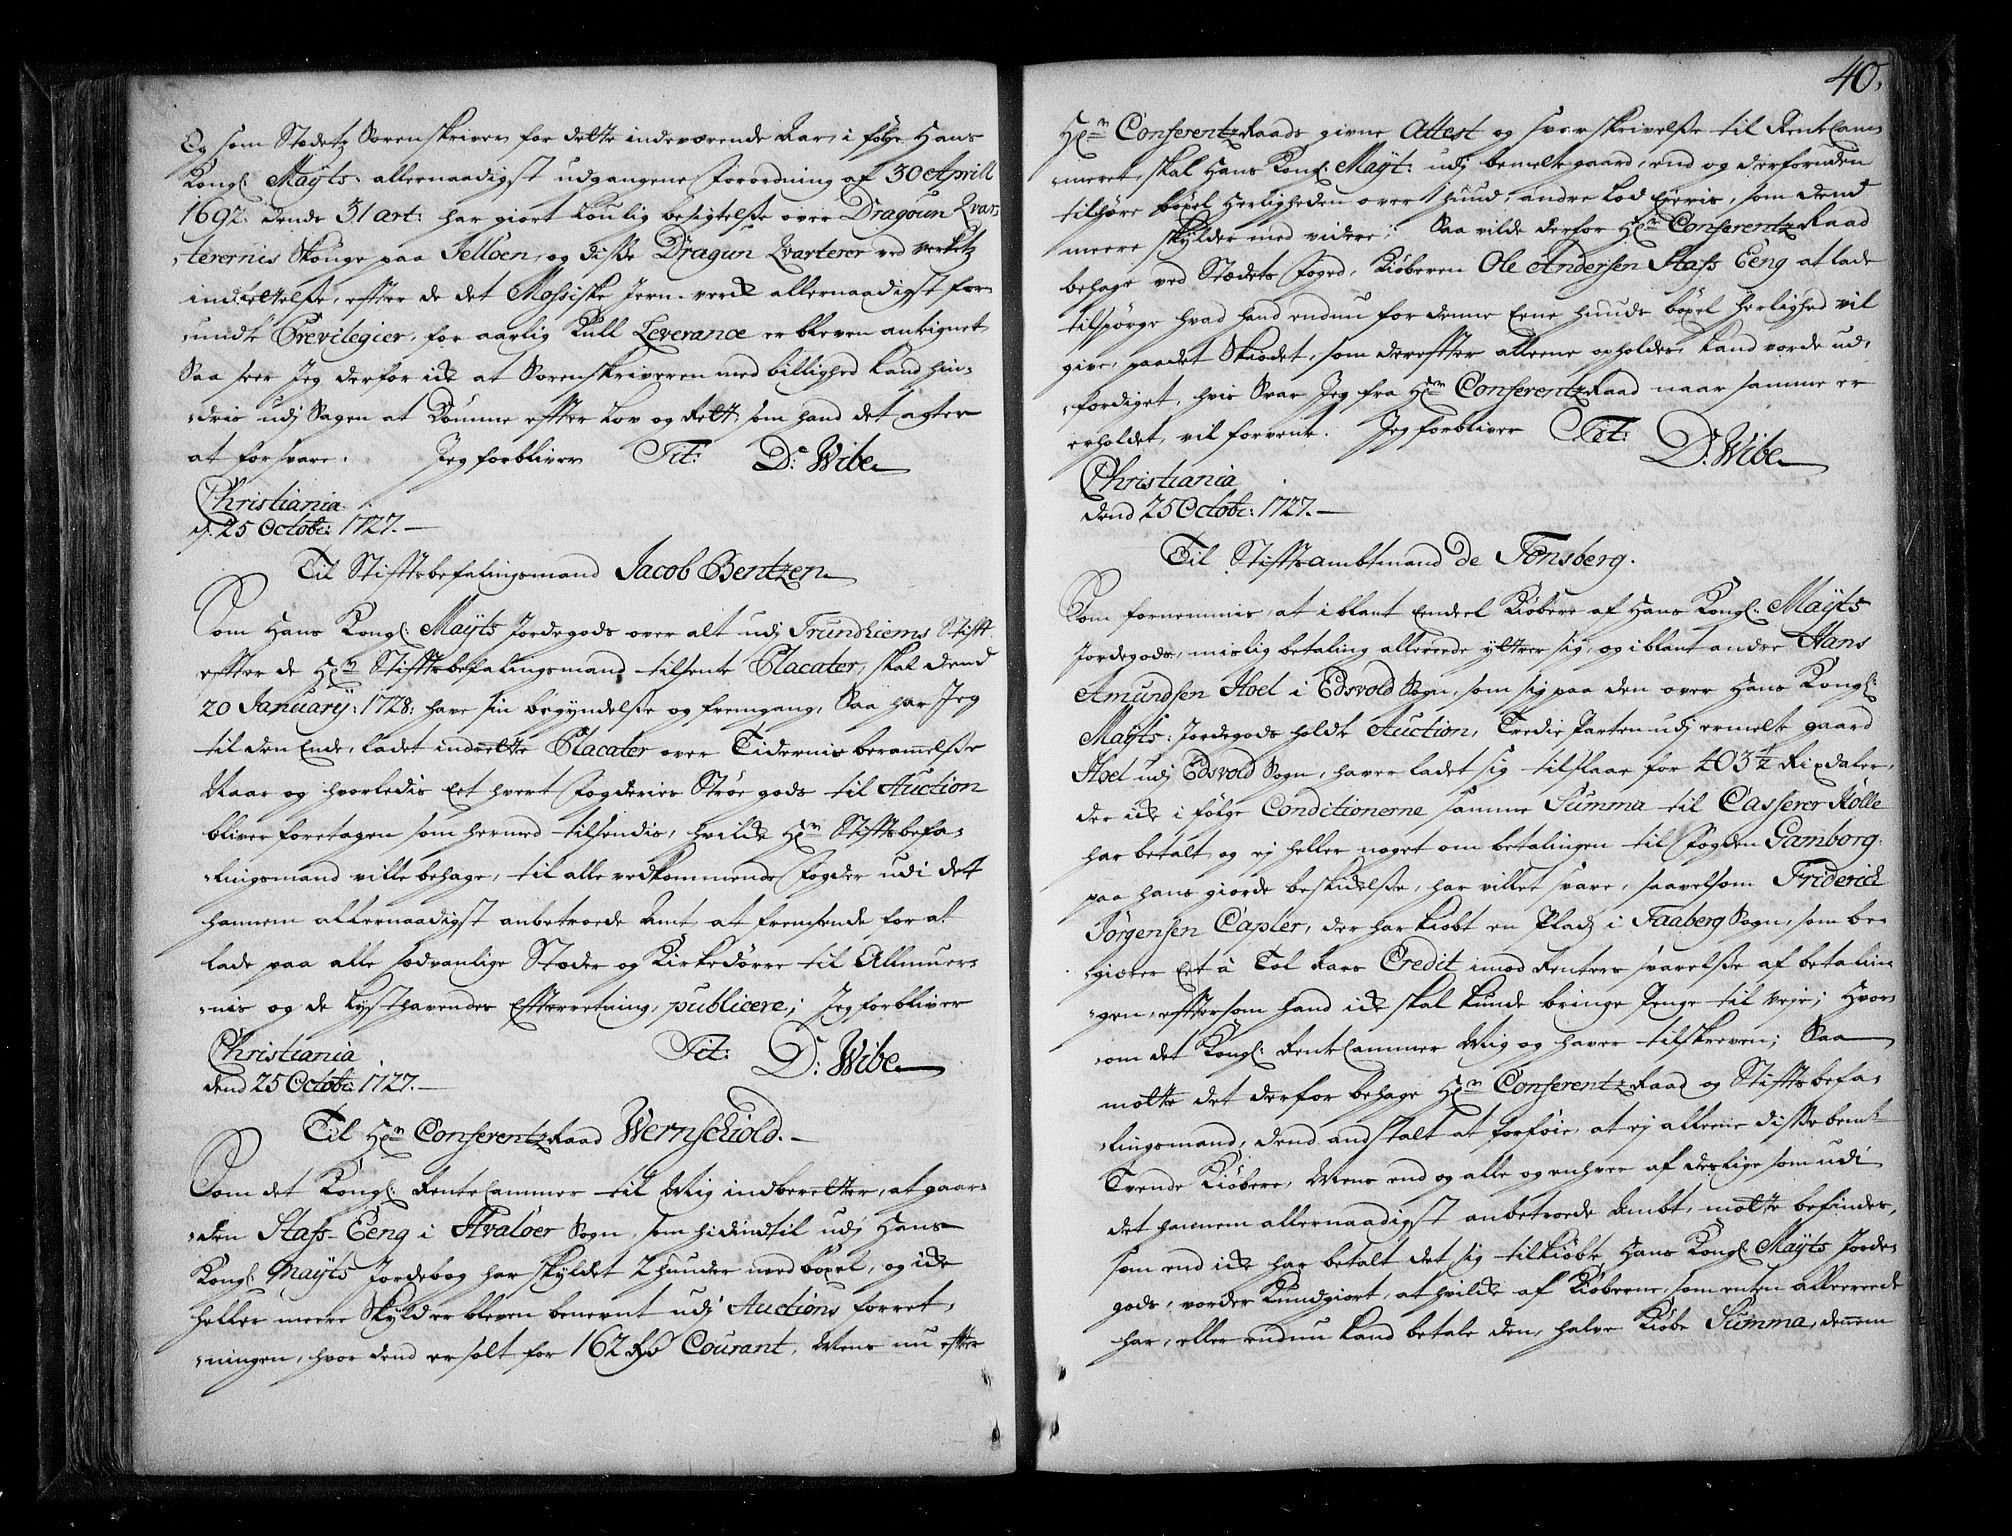 Og som Stedetz Sorenskriver for dette indeværende Aar, i følge Hans
Kongl: Mayts: allernaadigst udgangene Forordning af 30 Aprill
1692: dends 31 art: har giort louglig besigtelsse over Dragoun Qvar-
-terernis Skouge paa Jelløen, og disse Dragun Qvarterer ved Verketz
indrettelsse, efter de det Mossiske Jern-Verck allernaadigst for-
-undte Previlegier, for aarlig Kull Leverance er bleven antegnet
Saa seer Jeg derfor icke at Sorenskriveren med billighed kand hin-
-dris udj Sagen at Dømme efter Lov og Rett, som hand det agter
at forsvare. Jeg forbliver Tit: D: Wibe
Christiania
d. 25 Octobr: 1727.
Til Stiftsbefalingsmand Jacob Bentzen
Som Hans Kongl: Mayts Jordegods over alt udj Trundhiems Stift
efter de Hr: Stiftsbefalingsmand tilsente Placater, skal dend
20 January: 1728: have sin begyndelsse og fremgang, Saa har Jeg
til den Ende, ladet indrette Placater over Tidernis berammelsse
Naar og hvorledis Eet hvert Fogderies Strøe gods til Auction
bliver foretagen som hermed tilsendis, hvilcke Hr: Stiftsbefa-
-lingsmand ville behage, til alle vedkommende Fogder udi det
hannem allernaadigst anbetroede Amt at fremsende for at
lade paa alle sædvanlige Stæder og Kirkedørre til Allmuer-
-nis og de Lysthavendes Efterretning, publicere; Jeg forbliver
Christiania Tit: D: Wibe
dend 25 Octobr: 1727.
Til Hr: Conferentz Raad Wernschiold.
Som det Kongl: Rente Cammer til Mig indberetter, at gaar-
-den Stafs-Eeng i Hvaløer Sogn, som hidindtil udj Hans
Kongl: Mayts Jordebog har skyldet 2 huuder med bøxel, og icke
heller meere Skyld er bleven benevnt udj Auctions forret-
-ningen, hvor dend er solt for 162 Rd Courant, Mens nu efter
40.
Hr: Conferentz Raads givne Attest og svarskrivelsse til Rente Cam-
-meret, skal Hans Kongl: Mayt: udj bemelte gaard, end og derforuden
tilhøre bøxel Herligheden over 1 huud, andre Lod Eieris, som dend
meere skylder med videre; Saa vilde derfor Hr: Conferentz Raad
behage ved Stædets Foged, Kiøberen Ole Andersen Stafs Eeng at lade
tilspørge hvad hand endnu for denne Eene huuds bøxel Herlighed vil
give, paadet Skiødet, som derefter alleene opholdes, kand vorde ud-
-ferdiget, hvis Svar Jeg fra Hr: Conferentz Raad naar samme er
erholdet, vil forvente. Jeg forbliver Tit:
D: Wibe
Christiania
dend 25 Octobr: 1727.
Til Stiftsambtmand de Tonsberg.
Som fornemmis, at iblant Endeel Kiøbere af Hans Kongl: Mayts
Jordegods, mislig betaling allerede yttrer sig, og iblant andre Hans
Amundsen Hoel i Edsvold Sogn, som sig paa den over Hans Kongl:
Mayts: Jordegods holdte Auction, Tredie Parten udj ermelte gaard
Hoel udj Edsvold Sogn, haver ladet sig tilslaae for 403½ Rixdaler,
der icke i følge Conditionerne samme Summa til Casserer Stolle
har betalt, og ej heller noget om betalingen til Fogden Gamborg:
paa hans giorde beskickelsse, har villet svare, saavelsom Friderich
Jørgensen Capler, der har kiøbt en Pladz i Faaberg Sogn, som be-
-giærer Eet à Tol Aars Credit imod Renters svarelsse af betalin-
-gen, eftersom hand icke skal kunde bringe Penge til veje; Hvor-
-om det Kongl: Rente Cammer Mig og haver tilskreven; Saa
motte det derfor behage Hr: Conferentz Raad og Stiftsbefa-
-lingsmand, dend anstalt at forføie, at ej alleene disse bem:te
Tvende Kiøbere, Mens end og alle og enhver af deslige som udi
det hannem allernaadigst anbetroede Ambt, motte befindes,
som end icke har betalt det sig tilkiøbte Hans Kongl: Mayts Jorde-
gods, vorder kundgiort, at hvilcke af Kiøberne, som enten allereede
har, eller endnu kand betale den halve Kiøbe Summa, dennem